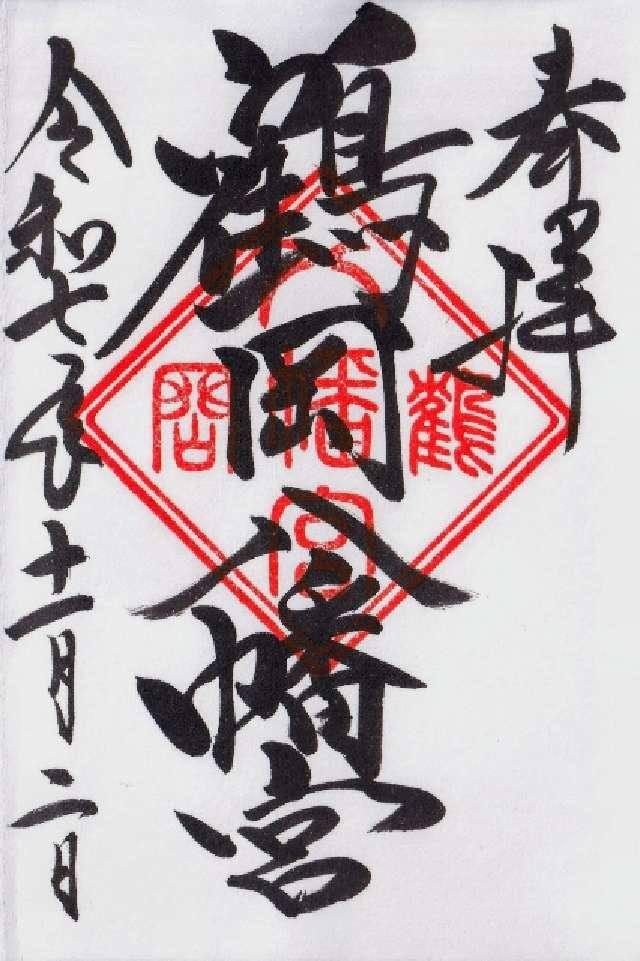 奉拝
鶴岡八幡宮
鶴岡八幡宮
令和七年十一月二日